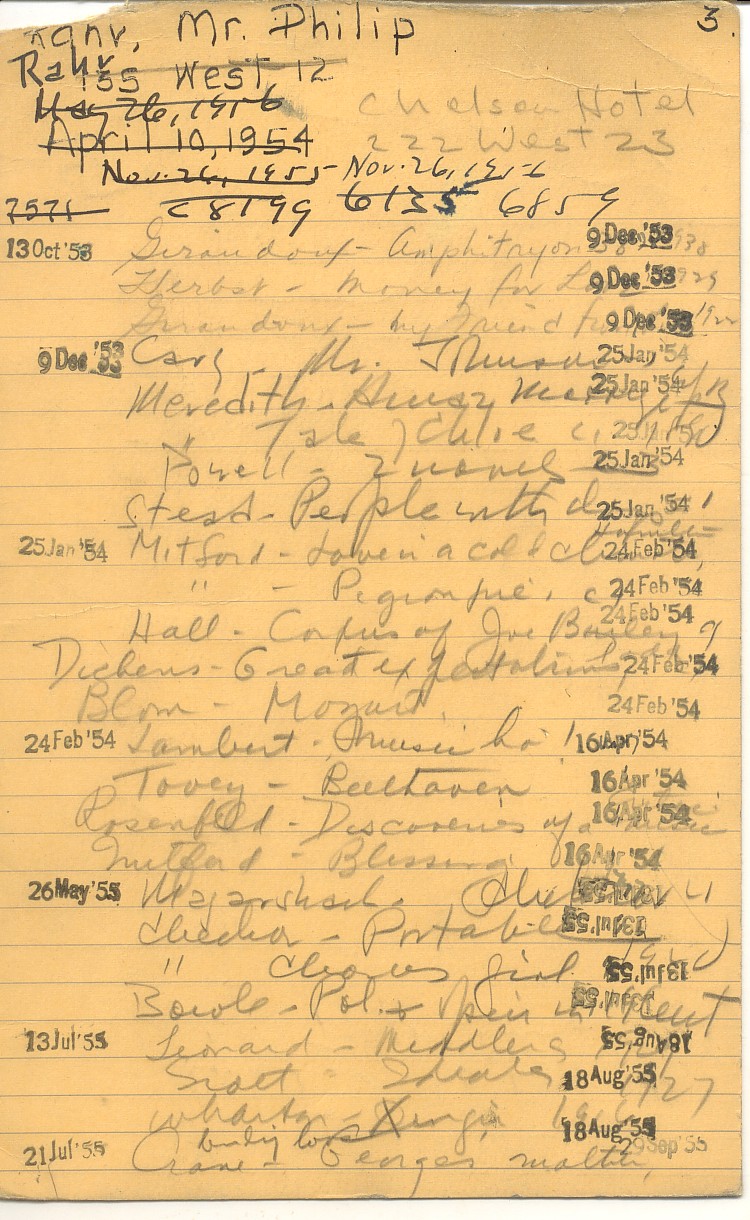 Rahv, Mr. Philip 3.
Rahv 155 West 12
May 26, 1956 Chelsea Hotel
April 10, 1954 222 West 23
Nov. 26, 1955 Nov. 26, 1956
7571 C8199 6135 6859
13 Oct '53 Giraudoux - Amphitryon 38 9 Dec '53
Herbst - Money for 9 Dec '53
Giraudoux - my Friend 9 Dec '53
9 Dec '53 Cary - Mr. Johnson 25 Jan '54
Meredith - 25 Jan '54
" Tale of Chloe 25 Jan '54
Powell - 2 novels 25 Jan '54
Stead - People with 25 Jan '54
25 Jan '54 Mitford - Love in a cold 24 Feb '54
" - Pigeon pie. 24 Feb '54
Hall - Corpus of Joe Bailey 24 Feb '54
Dickens - Great expectations 24 Feb '54
Blom - Mozart 24 Feb '54
24 Feb '54 Lambert - Music ho! 16 Apr '54
Tovey - Beethoven 16 Apr '54
Rosenfeld - Discoveries of a 16 Apr '54
Mitford - Blessing 16 Apr '54
26 May '55 Magarshack 13 Jul '55
Chekhov - Portable 13 Jul '55
" Chorus girl 13 Jul '55
Bowle - Pol. + 13 Jul '55
13 Jul '55 Leonard - Meddlers 18 Aug '55
Scott - 18 Aug '55
Wharton - 18 Aug '55
21 Jul '55 Crane - Georges mother 29 Sep '55